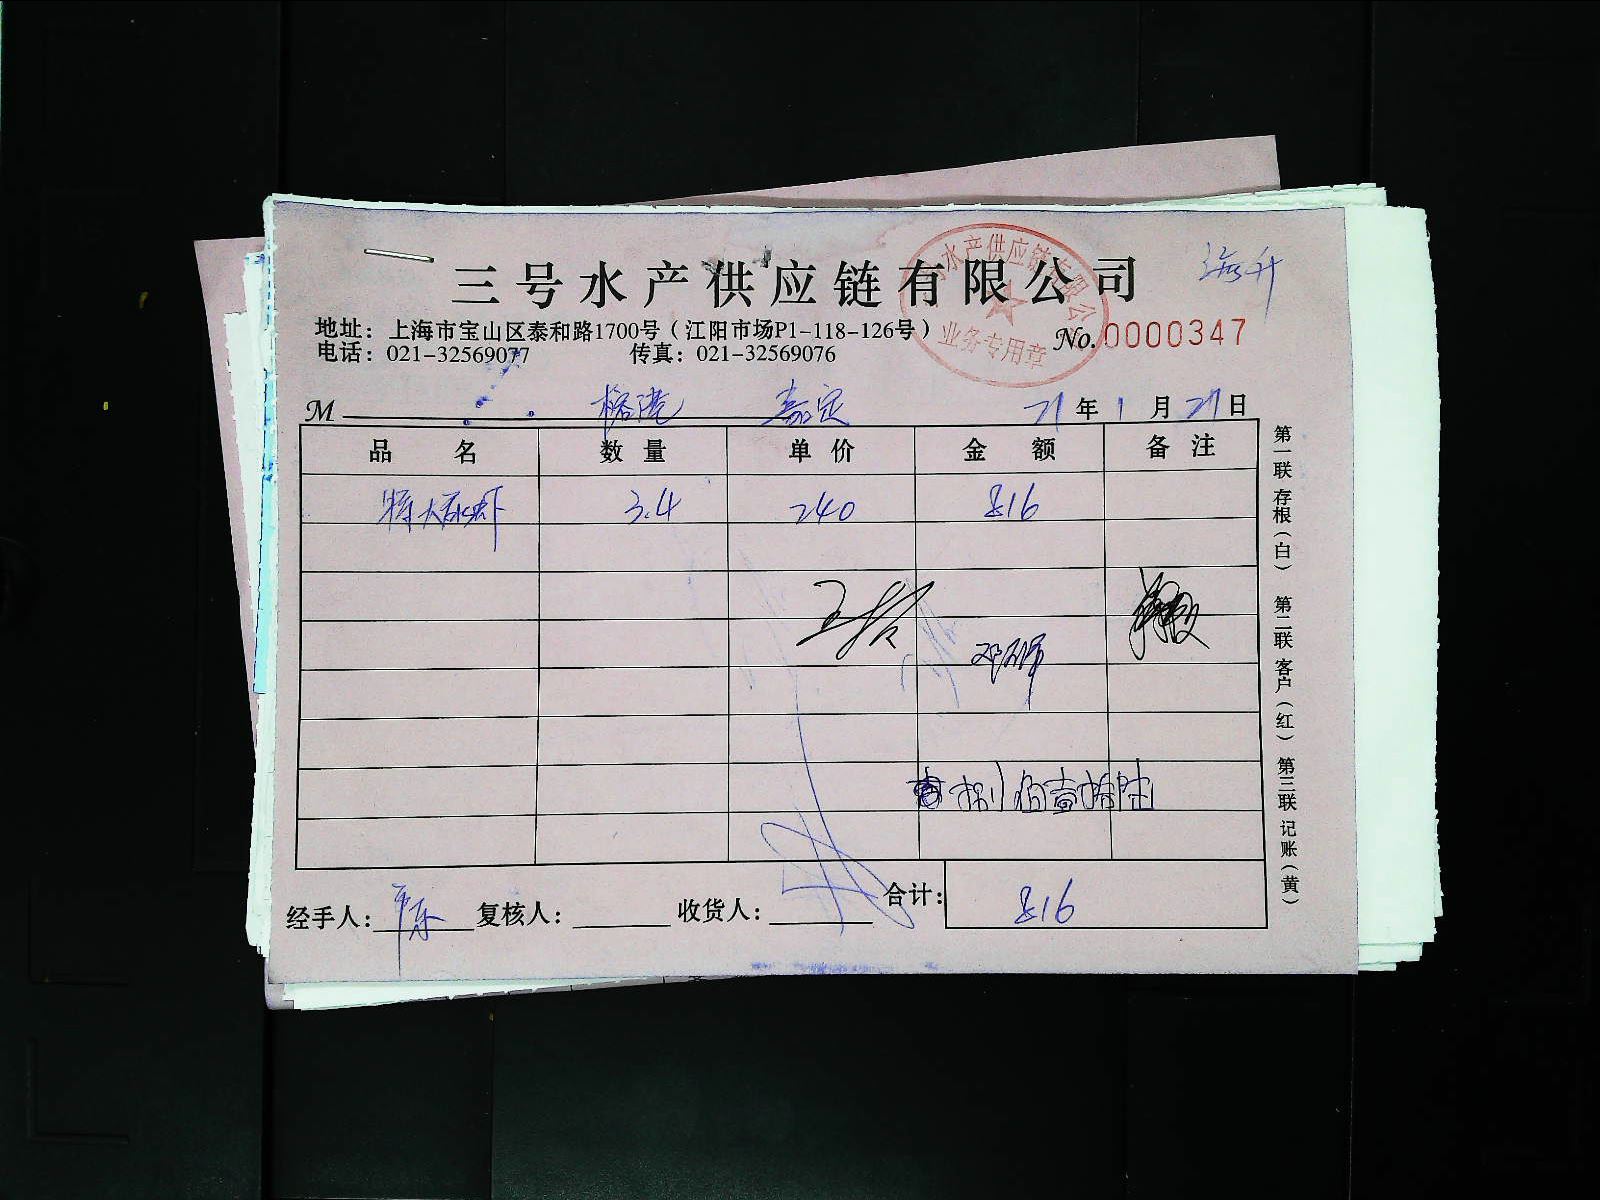 三号水产供应链有限公司
海升
水产供应链有限公
业务专用章
地址：上海市宝山区泰和路1700号（江阳市场P1-118-126号）
No.0000347
电话：021-32569077 传真：021-32569076
M 嘉定 21年1月21日
品名 数量 单价 金额 备注
特大 虾 3.4 240 816
捌佰壹拾陆
合计：816
经手人： 复核人： 收货人：
第一联存根（白） 第二联客户（红） 第三联记账（黄）